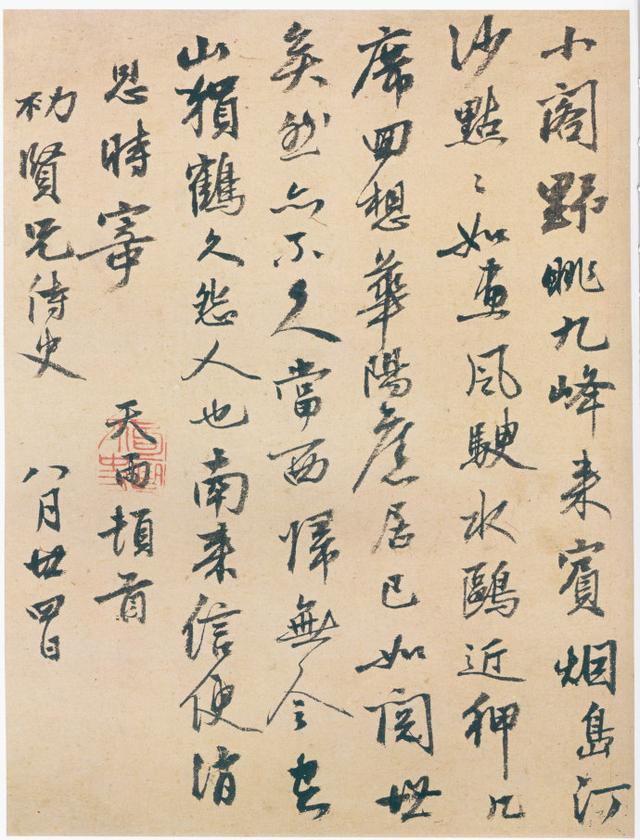 小閣野眺九峰来賓烟島汀
沙點〻如畫風颿水鷗近狎几
席回想華陽舊居已如閱世
矣然亦不久當西歸無令空
山猿鶴久怨人也南来信使消
息時寄 天雨頓首
賢兄侍史 八月廿四日